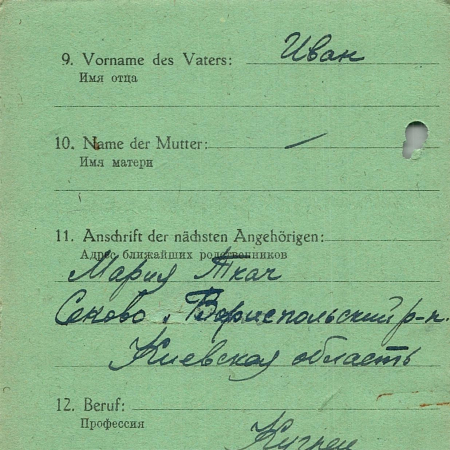 9. Vorname des Vaters: Иван
Имя отца
10. Name der Mutter: —
Имя матери
11. Anschrift der nächsten Angehörigen:
Адрес ближайших родственников
Мария Ткач
Секово, Бориспольский р-н.
Киевская область
12. Beruf:
Профессия